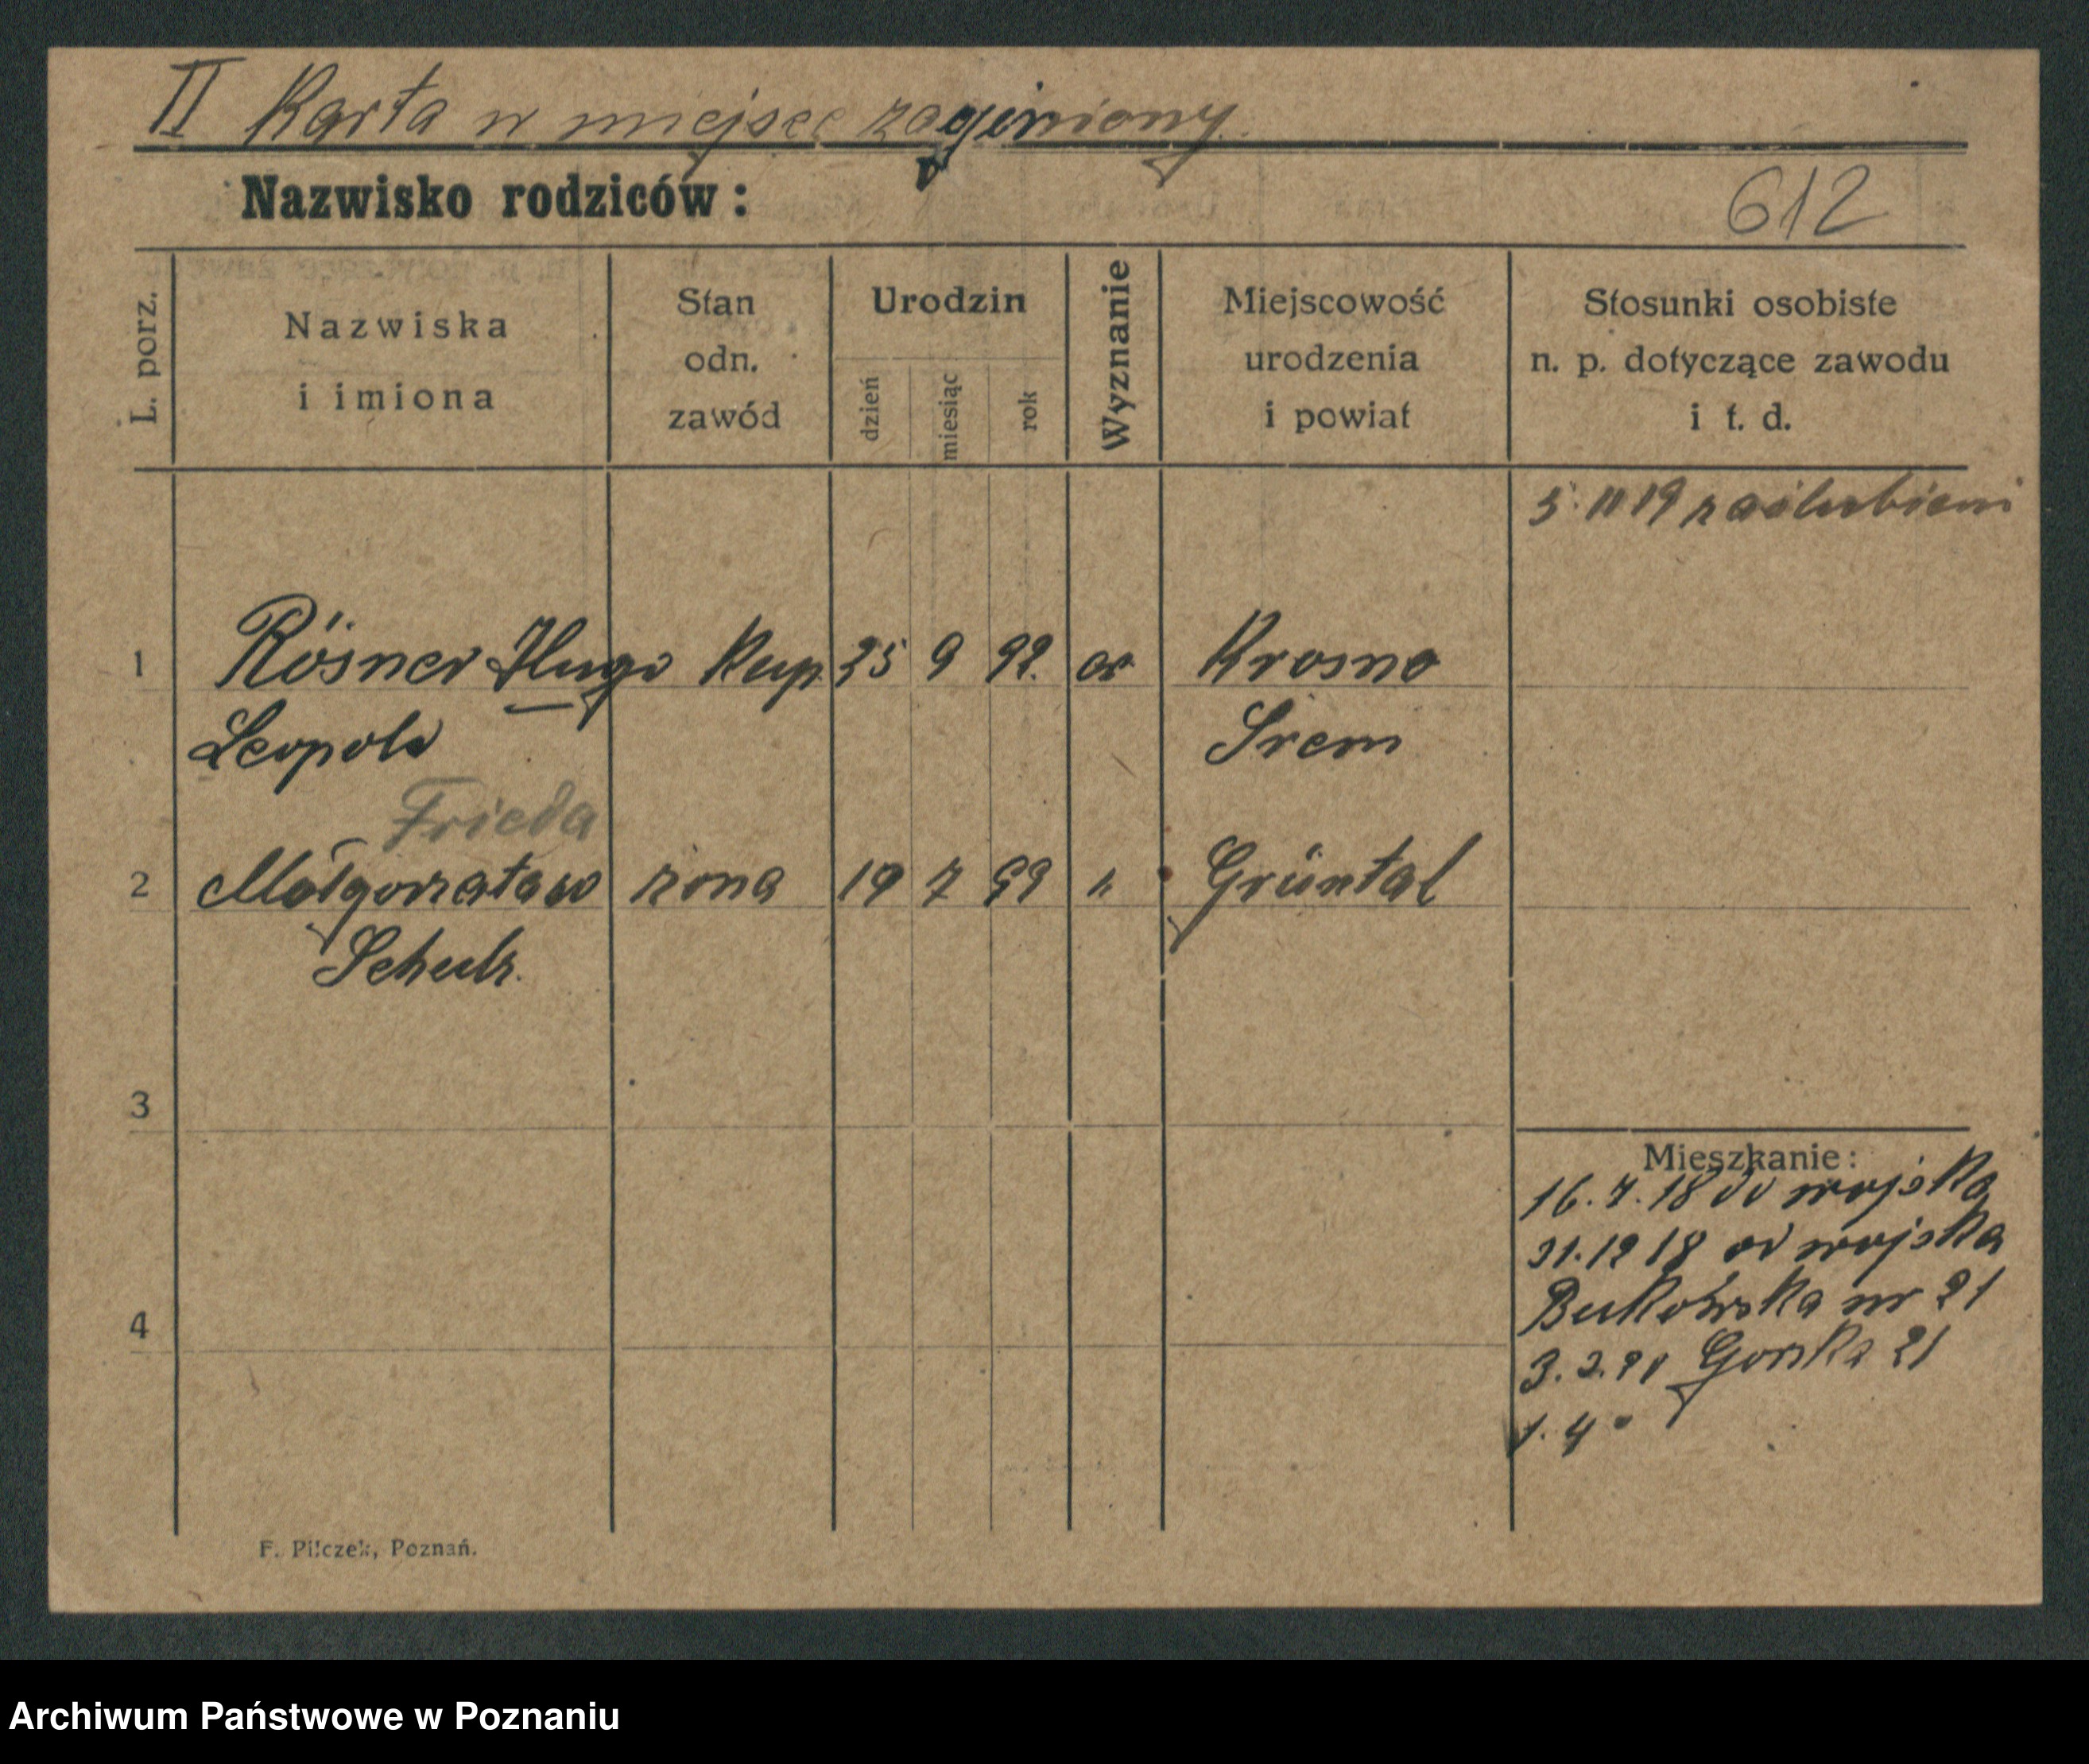 II Karta w miejsce zaginiony
Nazwisko rodziców:
612
L. porz.
Nazwiska
i imiona
Stan
odn.
zawód
Urodzin
dzień
miesiąc
rok
Wyznanie
Miejscowość
urodzenia
i powiat
Stosunki osobiste
n. p. dotyczące zawodu
i t. d.
5. 11 19 zaślubieni
1 Rösner Hugo Kup. 25 9 92. Krosno
Leopold Srem
Frieda
2 Małgorzata żona 19 7 99 " Grüntal
Schulz.
3
Mieszkanie:
16. 7. 18 do wojska
31. 12 18 od wojska
Bukowska nr 21
4
Gorska 21
1. 4
F. Pilczek, Poznań.
Archiwum Państwowe w Poznaniu